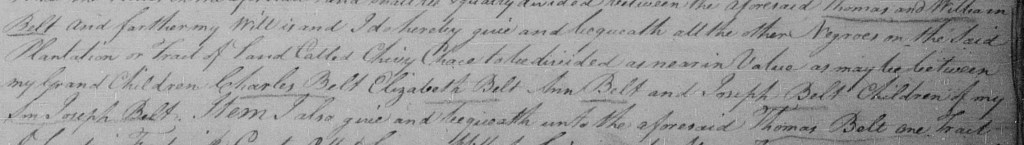 equally divided between the aforesaid Thomas and William
Belt And farther my Will is and I do hereby give and bequeath all the other Negroes on the Said
Plantation or Tract of Land Called Chivy Chace to be divided as near in Value as may be between
my Grand Children Charles Belt Elizabeth Belt Ann Belt and Joseph Belt Children of my
Son Joseph Belt. Item I also give and bequeath unto the aforesaid Thomas Belt one Tract